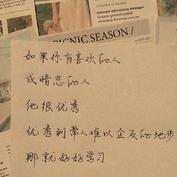 PICNIC SEASON /
如果你有喜欢的人
或暗恋的人
他很优秀
优秀到常人难以企及的地步
那就好好学习